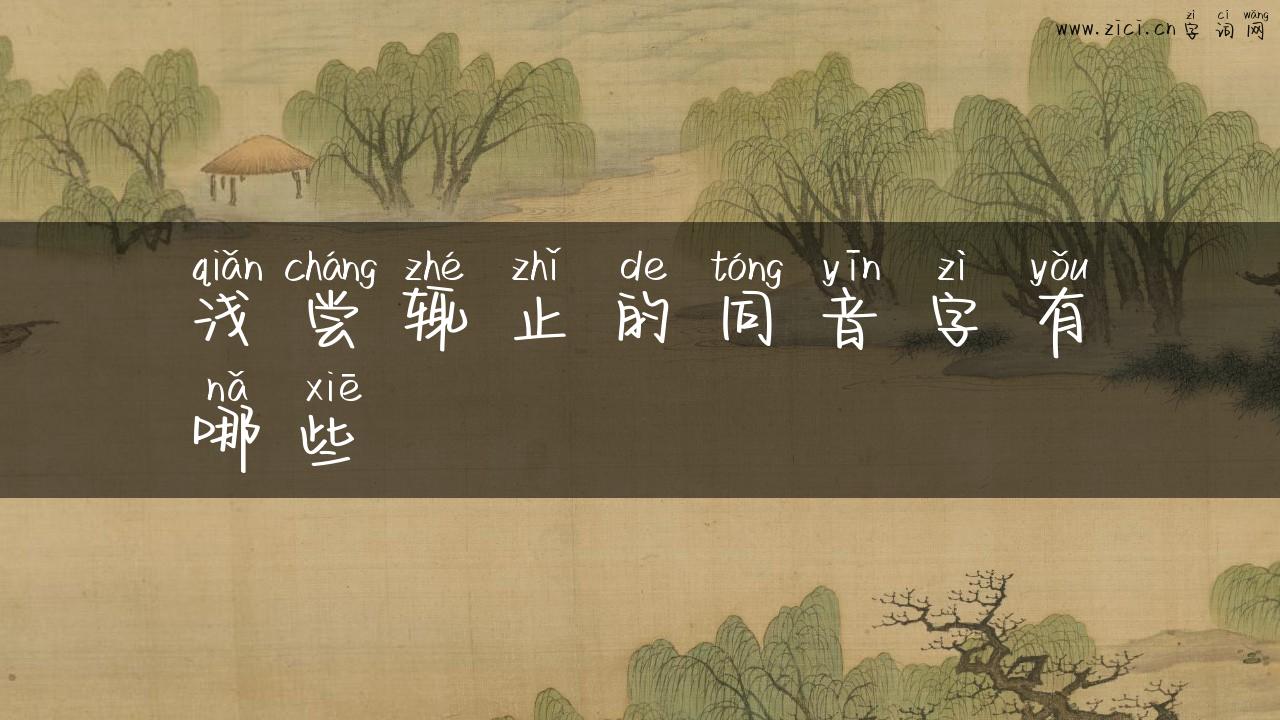 zì cí wǎng
www.zici.cn 字 词 网
qiǎn cháng zhé zhǐ de tóng yīn zì yǒu
浅 尝 辄 止 的 同 音 字 有
nǎ xiē
哪 些